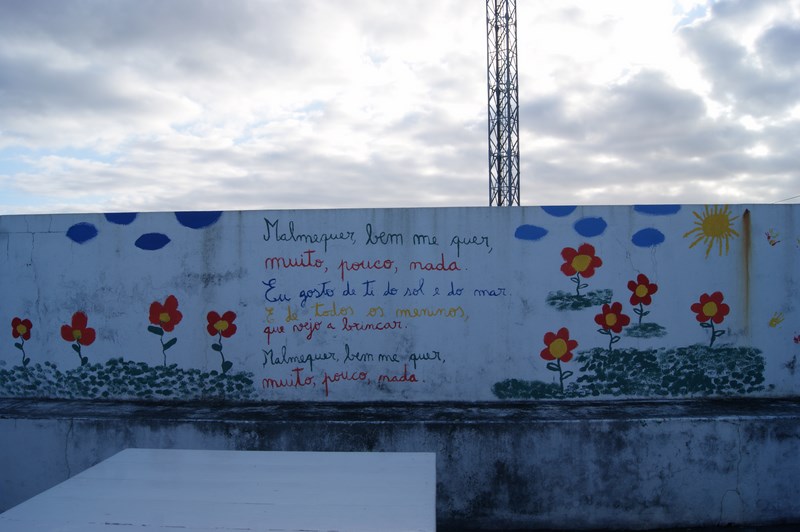 Malmequer, bem me quer,
muito, pouco, nada.
Eu gosto de ti do sol e do mar.
E de todos os meninos,
que vejo a brincar.
Malmequer, bem me quer,
muito, pouco, nada.